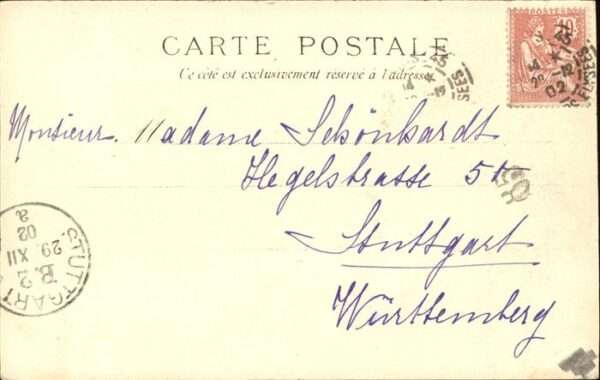 CARTE POSTALE
Ce côté est exclusivement réservé à l'adresse
Monsieur. Madame Schönhardt
Hegelstrasse 5
Stuttgart
Württemberg
STUTTGART
B. 2
29. XII
02
a